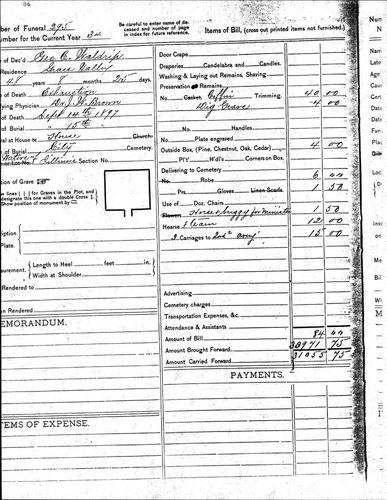 86
ber of Funeral 295
umber for the Current Year 34
Be careful to enter name of deceased and number of page in index for future reference.
of Dec'd Geo C. Waldrip
Residence Grass Valley
48 years months 25 days.
of Death
fying Physician Dr J. H. Brown
of Death Sept 14th 1897
of Burial " 15th "
ral at House or House Church
of Burial City Cemetery.
Native of Illinois Section No.
ition of Grave
s ( | ) for Graves in the Plot, and designate this one with a double Cross
Show position of monument by
ription
Plate.
asurement.
Length to Heel feet in.
Width at Shoulder
Rendered to
on Rendered
EMORANDUM.
TEMS OF EXPENSE.
Items of Bill, (cross out printed items not furnished.)
Door Crape
Draperies Candelabra and Candles.
Washing & Laying out Remains, Shaving
Preservation Remains
No. Casket, Coffin Trimming. 40 00
Dig Grave 4 00
No. Handles.
No. Plate engraved
Outside Box, (Pine, Chestnut, Oak, Cedar) 4 00
PIY H'dl's Corners on Box.
Delivering to Cemetery 6 00
No. Robe
Prs. Gloves Linen Scarfs. 1 50
Use of Doz. Chairs
Flowers Horse & buggy for Minister 1 50
Hearse & team 12 00
3 Carriages to 15 00
Advertising
Cemetery charges
Transportation Expenses, &c.
Attendance & Assistants
Amount of Bill 84 00
Amount Brought Forward 30971 75
Amount Carried Forward 31055 75
PAYMENTS.